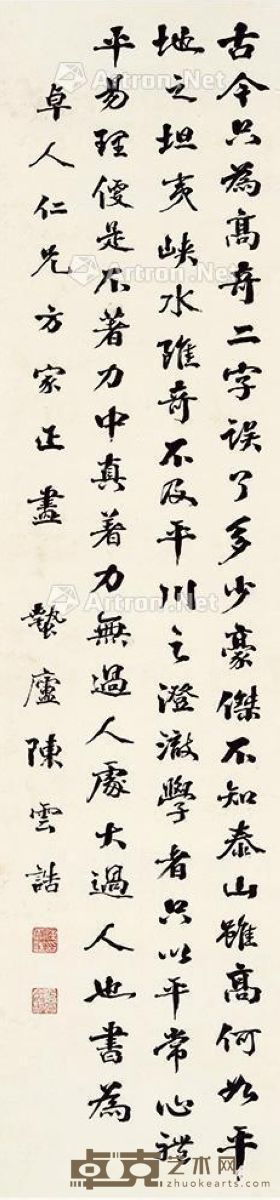 古今只為高奇二字误了多少豪傑不知泰山雖高何如平
地之坦夷峽水雖奇不及平川之澄澈學者只以平常心體
平易理便是不著力中真著力無過人處大過人也書為
卓人仁兄方家正盡 蟄廬陳雲誥
Artron.Net
Artron.Net
Artron.Net
Artron.Net
Artron.Net
Artron.Net
卓克艺术网
zhuokearts.com